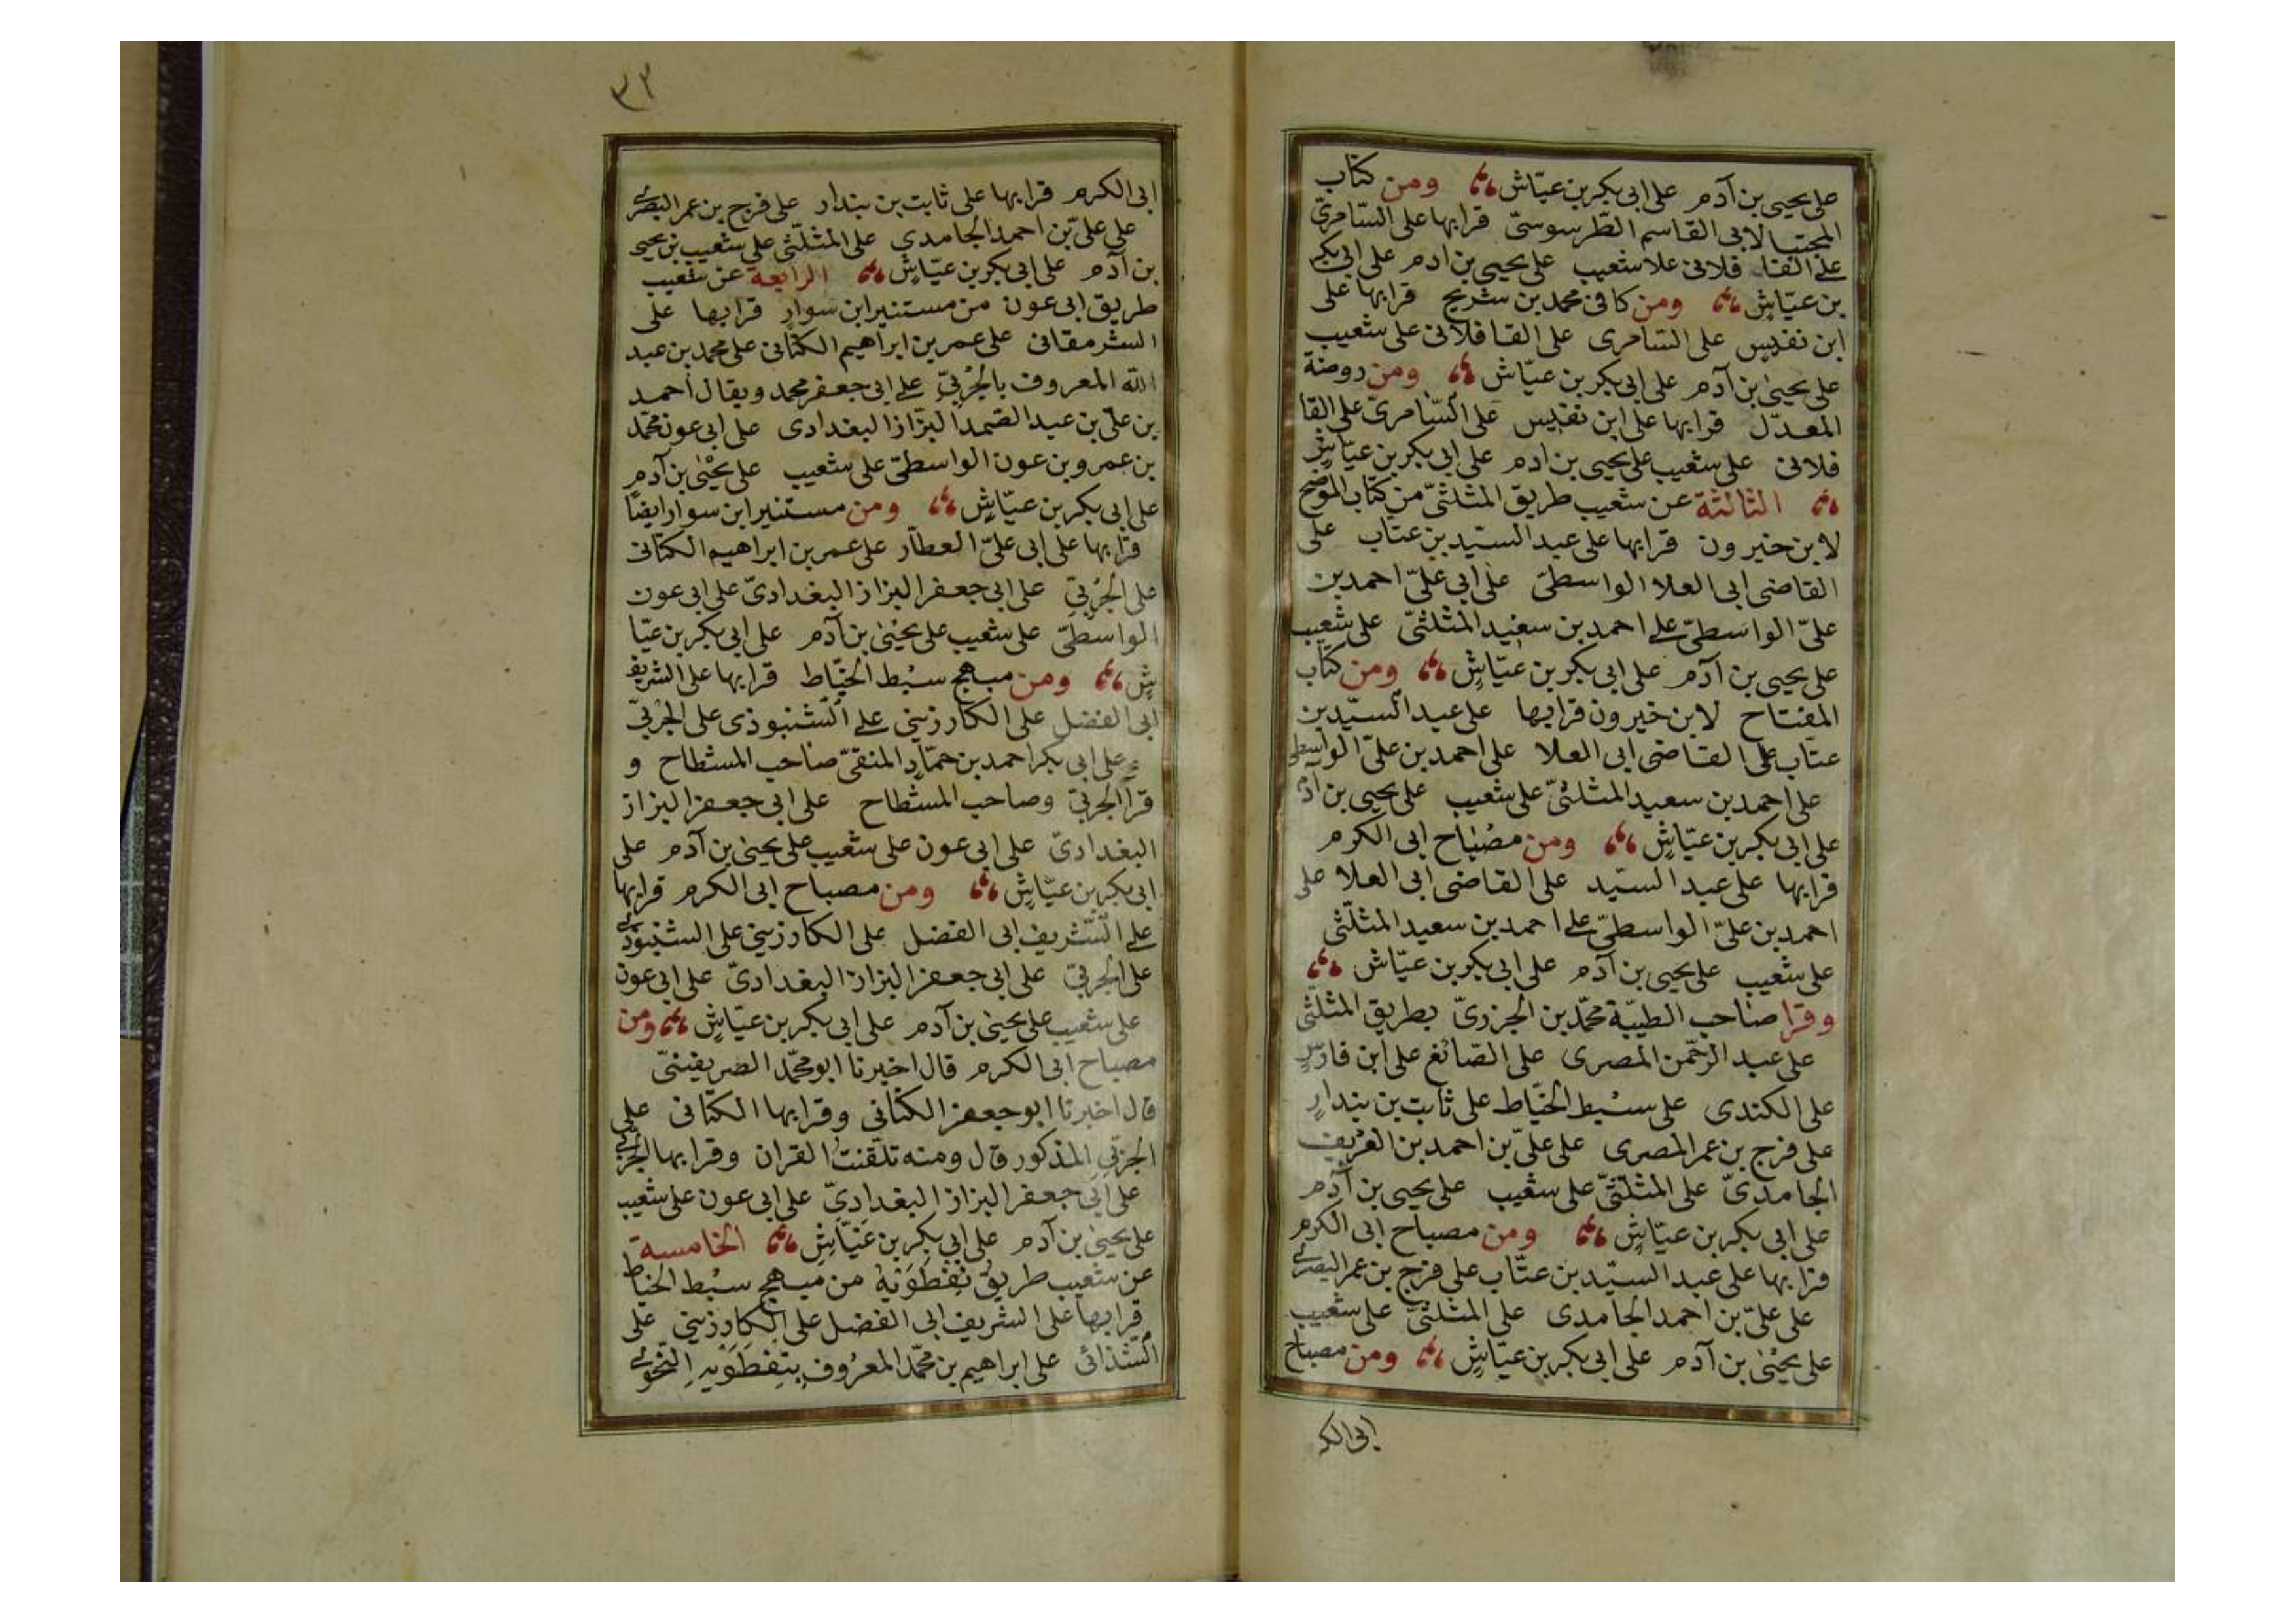 على يحيى بن آدم على ابى بكر بن عيّاش ومن كتاب
المجتبا لابى القاسم الطّرسوسىّ قرا بها على السّامرىّ
على القا فلانى علا شعيب على يحيى بن ادم على ابى بكر
بن عيّاشٍ ومن كافى محمد بن شريح قرا بها على
ابن نفيس على السّامرى على القافلانى على شعيب
على يحيىٰ بن آدم على ابى بكر بن عيّاش ومن روضة
المعدّل قرا بها على ابن نفيس على السّامرىّ على القا
فلانى على شعيب على يحيى بن ادم على ابى بكر بن عيّاشٍ
الثالثة عن شعيب طريق المثلثىّ من كتاب الموضح
لابن خيرون قرا بها على عبد السيّد بن عتاب على
القاضى ابى العلا الواسطىّ على ابى علىّ احمد بن
علىّ الواسطىّ على احمد بن سعيد المثلثىّ على شعيب
على يحيى بن آدم على ابى بكر بن عيّاشٍ ومن كتاب
المفتاح لابن خيرون قرا بها على عبد السيّد بن
عتاب على القاضى ابى العلا على احمد بن علىّ الواسطى
على احمد بن سعيد المثلثىّ على شعيب على يحيى بن آدم
على ابى بكر بن عيّاشٍ ومن مصباح ابى الكرم
قرا بها على عبد السيّد على القاضى ابى العلا على
احمد بن علىّ الواسطىّ على احمد بن سعيد المثلّثى
على شعيب على يحيى بن آدم على ابى بكر بن عيّاش
وقرا صاحب الطيّبة محمّد بن الجزرىّ بطريق المثلّثى
على عبد الرحمن المصرى على الصّائغ على ابن فارسٍ
على الكندى على سبط الخيّاط على ثابت بن بندارٍ
على فرج بن عمر المصرى على علىّ بن احمد بن العريف
الجامدىّ على المثلثىّ على شعيب على يحيى بن آدم
على ابى بكر بن عيّاشٍ ومن مصباح ابى الكرم
قرا بها على عبد السيّد بن عتّاب على فرج بن عمر البصرى
على علىّ بن احمد الجامدى على المثلثىّ على شعيب
على يحيىٰ بن آدم على ابى بكر بن عيّاشٍ ومن مصباح
ابى الكر
٣٢
ابى الكرم قرا بها على ثابت بن بندار على فرج بن عمر البصرى
على علىّ بن احمد الجامدى على المثلّثى على شعيب بن يحيى
بن آدم على ابى بكر بن عيّاشٍ الرابعة عن شعيب
طريق ابى عون من مستنير ابن سوارٍ قرا بها على
الشرمقانى على عمر بن ابراهيم الكتّانى على محمد بن عبد
الله المعروف بالحربىّ على ابى جعفر محمد ويقال احمد
بن علىّ بن عبد الصّمد البزّاز البغدادى على ابى عون محمّد
بن عمرو بن عون الواسطىّ على شعيب على يحيىٰ بن آدم
على ابى بكر بن عيّاشٍ ومن مستنير ابن سوار ايضًا
قرا بها على ابى علىّ العطّار على عمر بن ابراهيم الكتانى
على الحربىّ على ابى جعفر البزاز البغدادىّ على ابى عون
الواسطىّ على شعيب على يحيىٰ بن آدم على ابى بكر بن عيّا
شٍ ومن مبهج سبط الخيّاط قرا بها على الشريف
ابى الفضل على الكارزينى على الشنبوذى على الحربىّ
وعلى ابى بكر احمد بن حمّادٍ المنقىّ صاحب المشطاح و
قرآ الحربىّ وصاحب المشطاح على ابى جعفر البزاز
البغدادىّ على ابى عون على شعيب على يحيىٰ بن آدم على
ابى بكر بن عيّاشٍ ومن مصباح ابى الكرم قرا بها
على الشّريف ابى الفضل على الكارزينى على الشنبوذى
على الحربىّ على ابى جعفر البزاز البغدادىّ على ابى عون
على شعيب على يحيىٰ بن آدم على ابى بكر بن عيّاشٍ ومن
مصباح ابى الكرم قال اخبرنا ابو محمّد الصريفينىّ
قال اخبرنا ابو جعفر الكتّانى وقرا بها الكتّانى على
الحربىّ المذكور قال ومنه تلقّنتُ القران وقرا بها الحربى
على ابى جعفر البزاز البغدادىّ على ابى عون على شعيب
على يحيىٰ بن آدم على ابى بكر بن عيّاشٍ الخامسة
عن شعيب طريق نفطَوَيْه من مبهج سبط الخياط
قرا بها على الشريف ابى الفضل على الكارزينى على
الشّذائى على ابراهيم بن محمّد المعروف بنفطَوَيْهِ النحوى